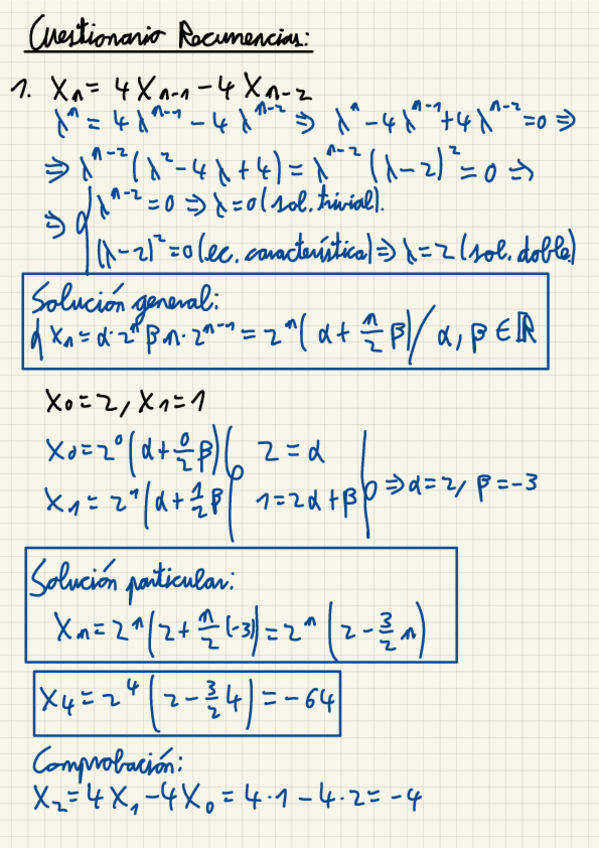 Cuestionario Recurrencias:
1. Xn = 4Xn-1 - 4Xn-2
λ^n = 4λ^n-1 - 4λ^n-2 ⇒ λ^n - 4λ^n-1 + 4λ^n-2 = 0 ⇒
⇒ λ^n-2 (λ^2 - 4λ + 4) = λ^n-2 (λ - 2)^2 = 0 ⇒
⇒ { λ^n-2 = 0 ⇒ λ = 0 (sol. trivial).
(λ - 2)^2 = 0 (ec. característica) ⇒ λ = 2 (sol. doble)
Solución general:
{ Xn = α · 2^n β n · 2^n-1 = 2^n (α + n/2 β) / α, β ∈ ℝ
X0 = 2, X1 = 1
X0 = 2^0 (α + 0/2 β) } 2 = α
X1 = 2^1 (α + 1/2 β } 1 = 2α + β } ⇒ α = 2, β = -3
Solución particular:
Xn = 2^n (2 + n/2 (-3)) = 2^n (2 - 3/2 n)
X4 = 2^4 (2 - 3/2 4) = -64
Comprobación:
X2 = 4X1 - 4X0 = 4 · 1 - 4 · 2 = -4